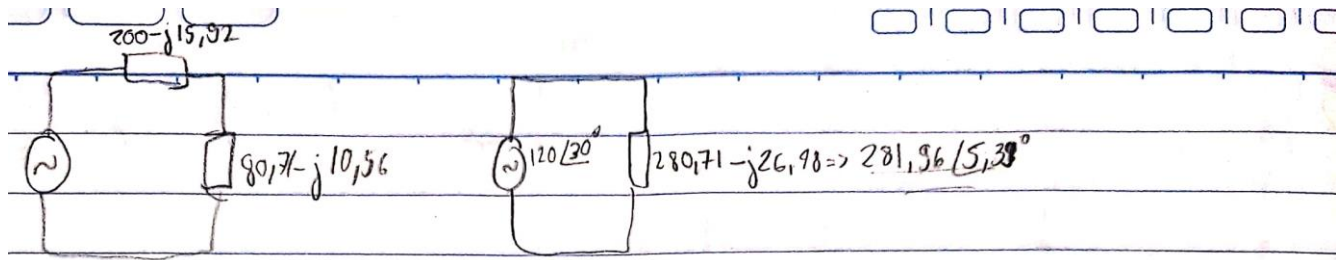 200-j15,92
80,71-j10,56
120/30°
280,71-j26,48=> 281,96/5,39°